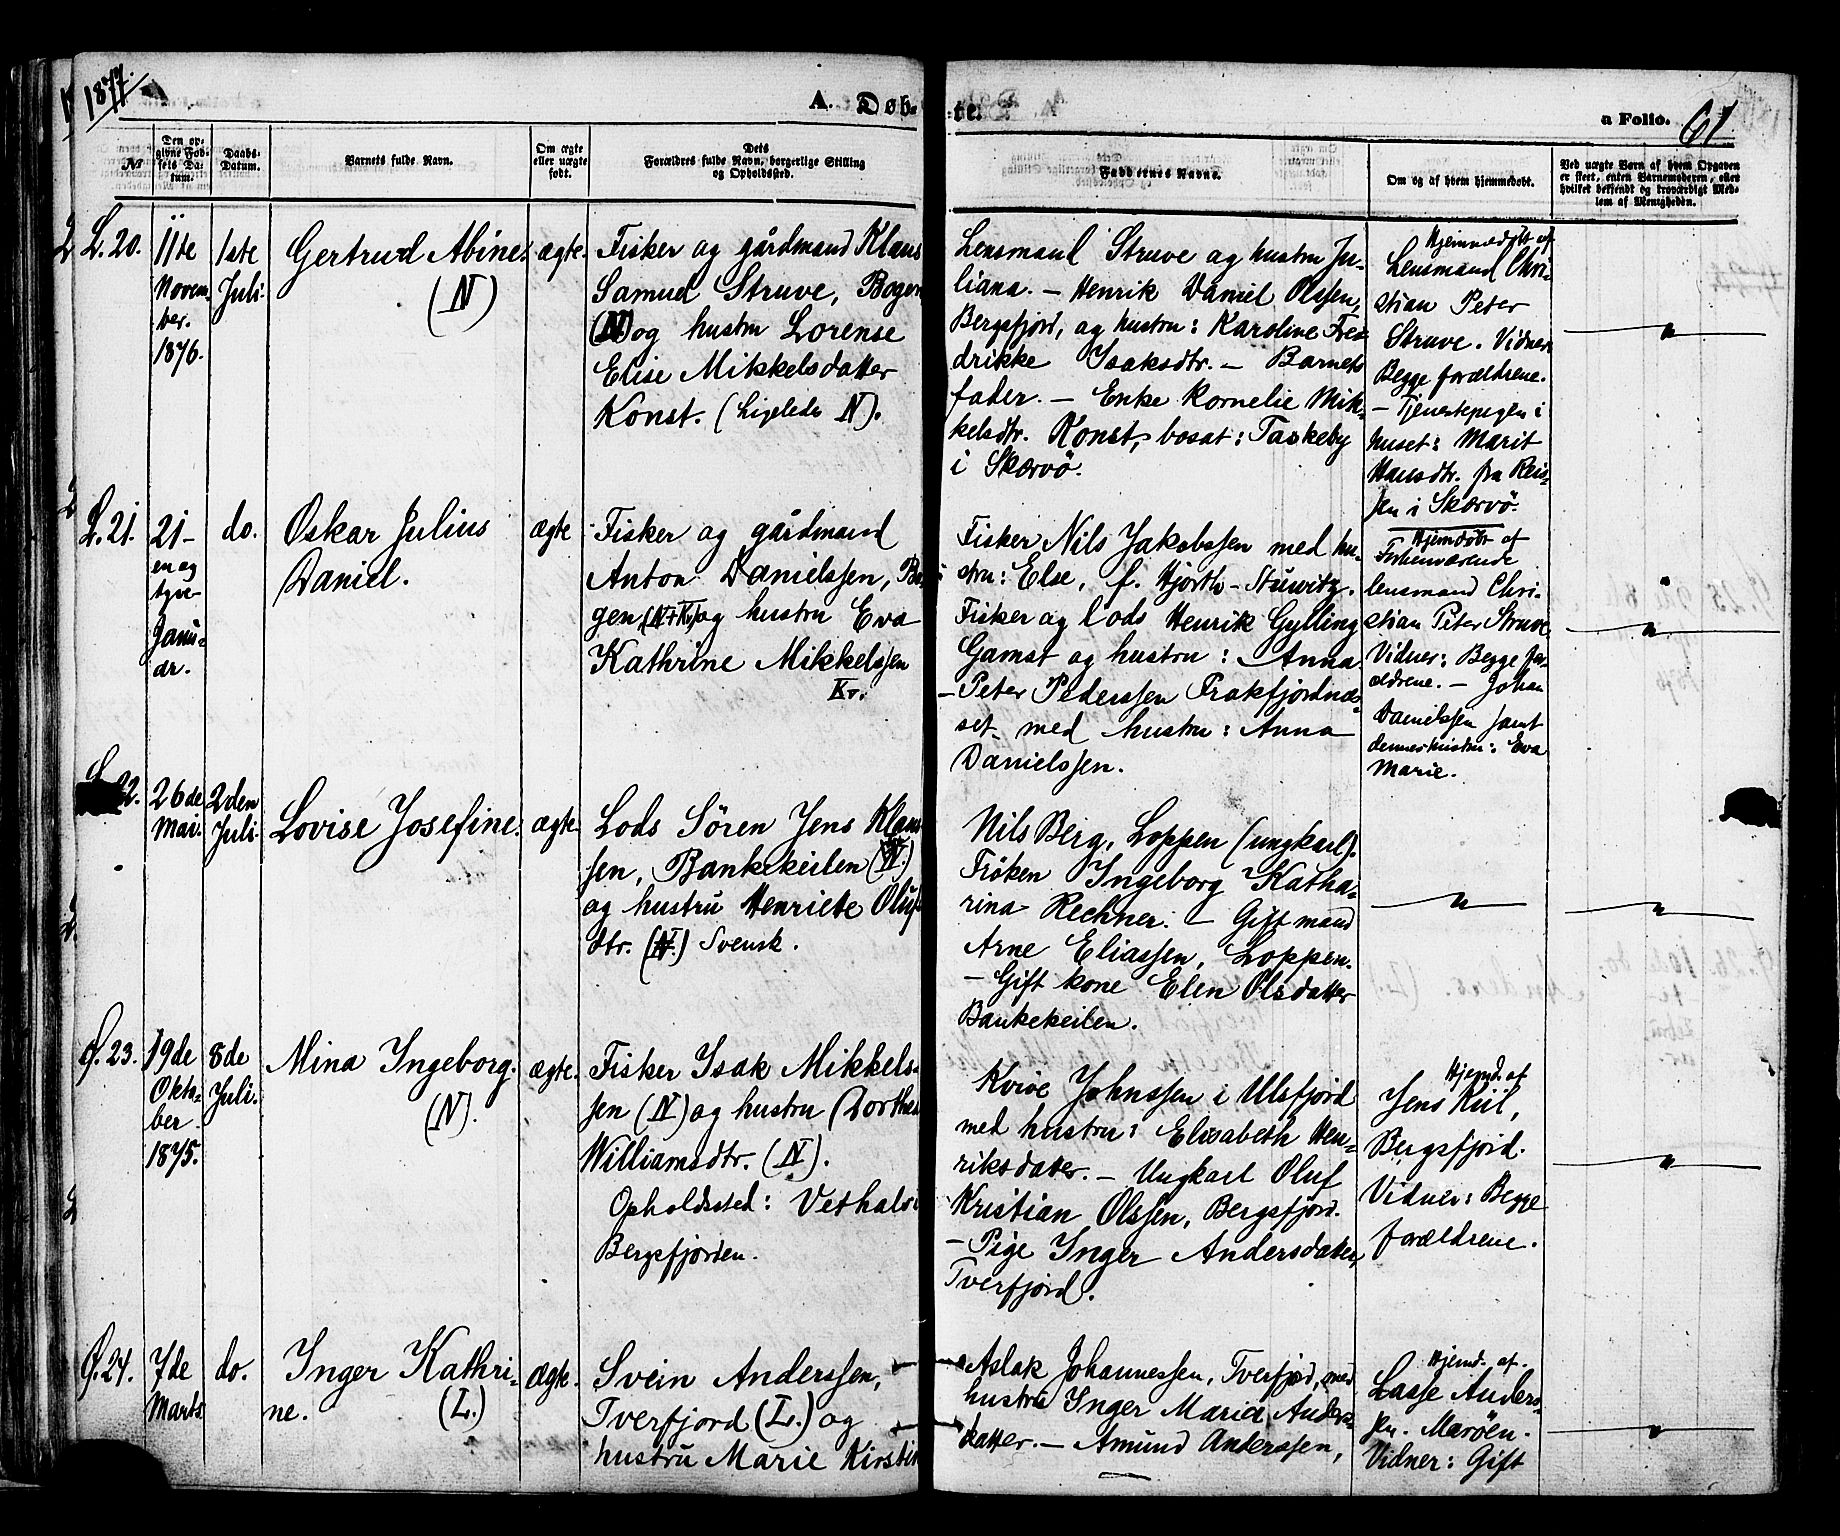 1877.
A. Døb-
te.
a Folio. 61
№
Den op-
givne Fød-
sels Da-
tum.
Daabs-
Datum.
Barnets fulde Navn.
Om ægte
eller uægte
født.
Dets
Forældres fulde Navn, borgerlige Stilling
og Opholdssted.
Faddernes Navne.
Om og af hvem hjemmedøbt.
Ved uægte Børn af hvem Opgaven
er skeet, enten Barnemoderen, eller
hvilket bekjendt og troværdigt Med-
lem af Menigheden.
L. 20.
11te
Novem-
ber.
1876.
1ste
Juli.
Gertrud Abine.
(N)
ægte.
Fisker og gårdmand Klaus
Samuel Struve, Bogen
(N) og hustru Lorense
Elise Mikkelsdatter
Konst. (Ligeledes N).
Lensmand Struve og hustru Ju-
liana. — Henrik Daniel Olssen,
Bergsfjord, og hustru: Karoline Fre-
drikke Isaksdtr. — Barnets
fader. — Enke Kornelie Mik-
kelsdtr. Konst, bosat: Taskeby
i Skærvö.
Hjemmedöbt af
Lensmand Chri-
stian Peter
Struve. Vidner
Begge forældrene.
— Tjenestepigen i
huset: Marit
Hansdtr. fra Reis-
sen i Skærvö.
"
L. 21.
21-
en og
tyve-
Janu-
ar.
do.
Oskar Julius
Daniel.
ægte
Fisker og gårdmand
Anton Danielssen, Bo-
gen, (N+Kv) og hustru Eva
Kathrine Mikkelssen
Kv.
Fisker Nils Jakobssen med hu-
stru: Else, f. Hjorth-Stuwitz.
Fisker og Lods Henrik Gylling
Gamst og hustru: Anna
— Peter Pederssen Frakfjordnæs-
set med hustru: Anna
Danielssen.
Hjemdöbt af
Forhenværende
lensmand Chri-
stian Peter Struve
Vidner: Begge for-
ældrene. — Johan
Danielssen samt
dennes hustru: Eva
Marie.
"
L. 22.
26de
Mai.
2den
Juli
Lovise Josefine.
ægte
Lods Sören Jens Klaus-
sen, Bankekeilen (N.)
og hustru Henriete Oluf-
dtr. (N.) Svensk.
Nils Berg, Loppen (ungkarl).
Fröken Ingeborg Katha-
rina Rechner. — Gift mand
Arne Eliassen, Loppen.
— Gift kone Elen Olsdatter
Bankekeilen.
"
"
Ø. 23.
19de
Okto-
ber
1875.
8de
Juli.
Mina Ingeborg.
(N).
ægte.
Fisker Isak Mikkels-
sen (N) og hustru Dorthea
Williamsdtr. (N).
Opholdssted: Vethals-
Bergsfjorden.
Kvive Johnssen i Ulsfjord
med hustru: Elisabeth Hen-
riksdatter. — Ungkarl Oluf
Kristian Olssen, Bergsfjord.
— Pige Inger Andersdatter,
Tverfjord.
Hjemd. af
Jens Kiil,
Bergsfjord.
Vidner: Begge
forældrene.
"
Ø. 24.
7de
Marts
do.
Inger Kathri-
ne. (L.)
ægte.
Svein Anderssen,
Tverfjord (L.) og
hustru Marie Kirstin
Aslak Johannessen, Tverfjord, med
hustru Inger Maria Anders-
datter. — Amund Anderssen,
Hjemd. af.
Lasse Anders-
sen. Maröen.
Vidner: Gift
"